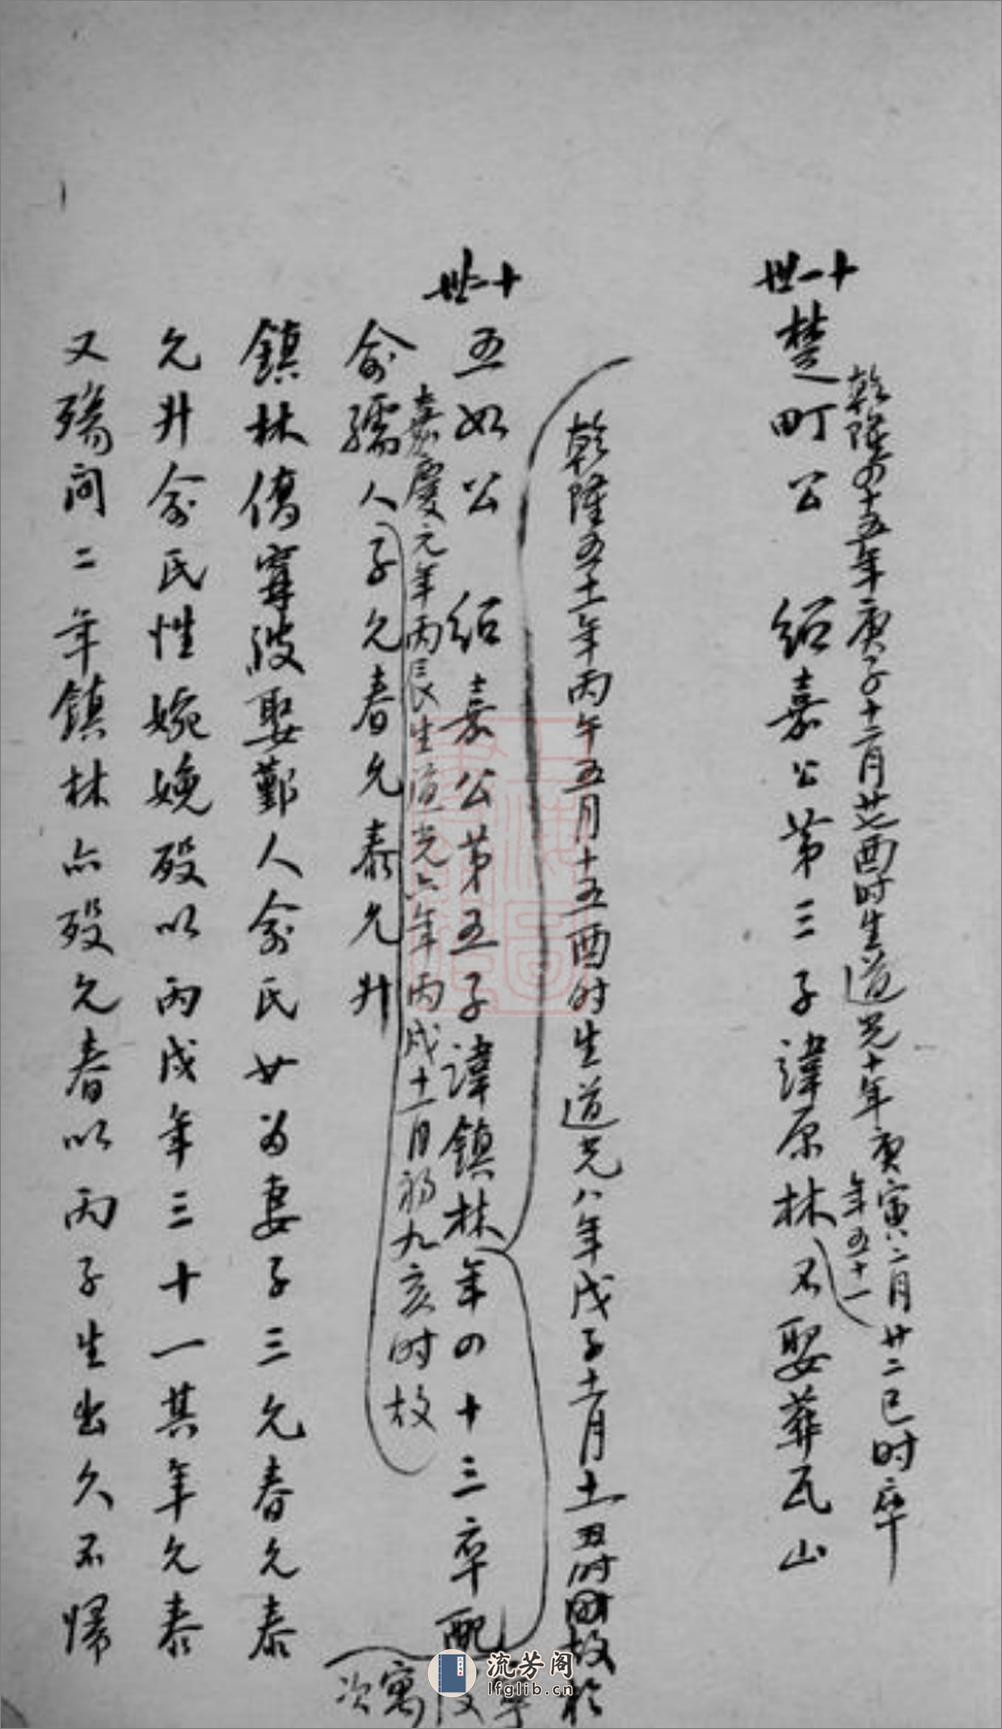 乾隆四十五年庚子十二月廿酉时生道光十年庚寅二月廿二巳时卒
年五十一
十一世
楚町公 绍嘉公第三子諱原林不娶葬瓦山
乾隆五十一年丙午五月十五酉时生道光八年戊子十一月十一丑时故於
寧波寓次
十二世
五如公 绍嘉公第五子諱鎮林年四十三卒配
嘉慶元年丙辰生道光六年丙戌十一月初九亥时故
俞孺人子允春允泰允升
鎮林僑寧波娶鄞人俞氏女为妻子三允春允泰
允升俞氏性婉娩殁以丙戌年三十一其年允泰
又殇间二年鎮林亦殁允春以丙子生出久不帰
流芳阁
lfglib.cn